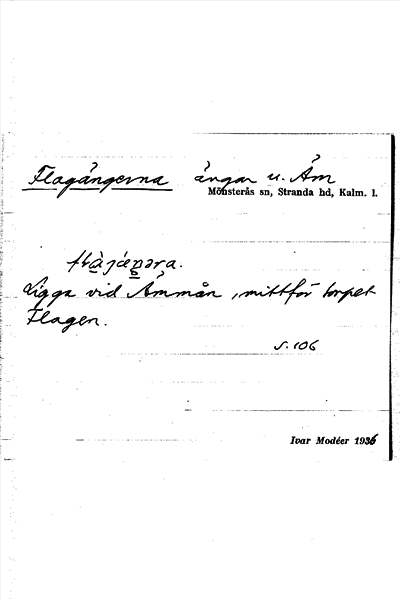 Flagängerna ängar u. Åm
Mönsterås sn, Stranda hd, Kalm. l.
Ligga vid Åmmån, mittför torpet
Flagen.
s. 106
Ivar Modéer 1936